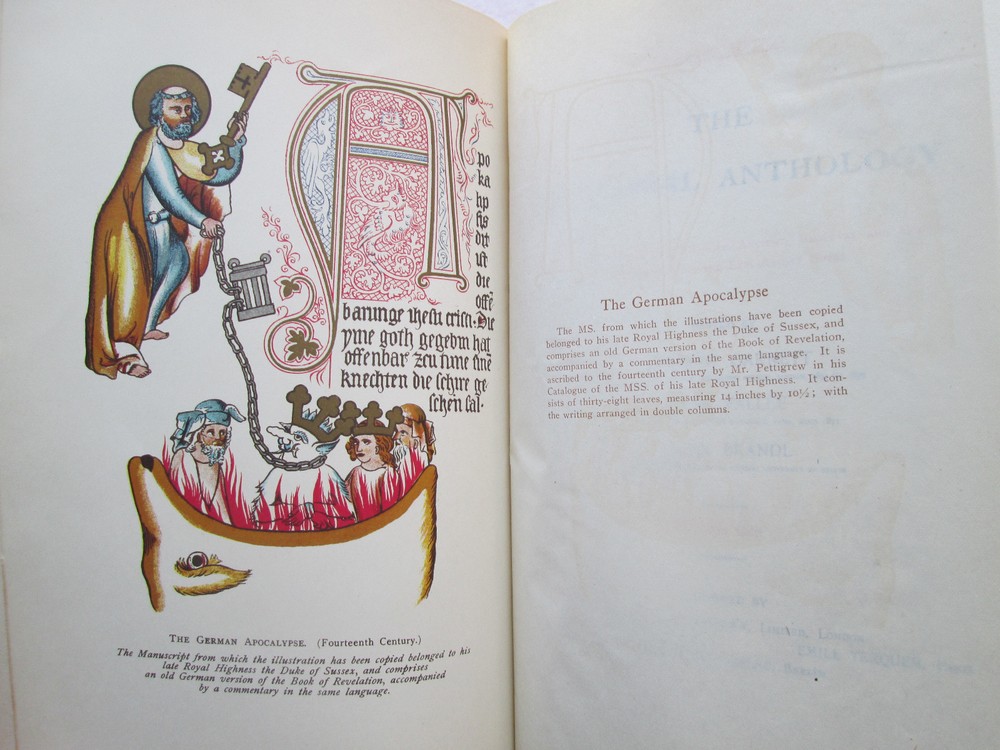 A
po
ka
lip
sis
dit
ist
die
offē
barunge ihesu cristi. Die
yme goth gegebin hat
offenbar zcu tune sinē
knechten die schire ge
schen sal.
THE GERMAN APOCALYPSE. (Fourteenth Century.)
The Manuscript from which the illustration has been copied belonged to his
late Royal Highness the Duke of Sussex, and comprises
an old German version of the Book of Revelation, accompanied
by a commentary in the same language.
THE
ANTHOLOGY
The German Apocalypse
The MS. from which the illustrations have been copied
belonged to his late Royal Highness the Duke of Sussex, and
comprises an old German version of the Book of Revelation,
accompanied by a commentary in the same language. It is
ascribed to the fourteenth century by Mr. Pettigrew in his
Catalogue of the MSS. of his late Royal Highness. It con-
sists of thirty-eight leaves, measuring 14 inches by 10½; with
the writing arranged in double columns.
BRANDL